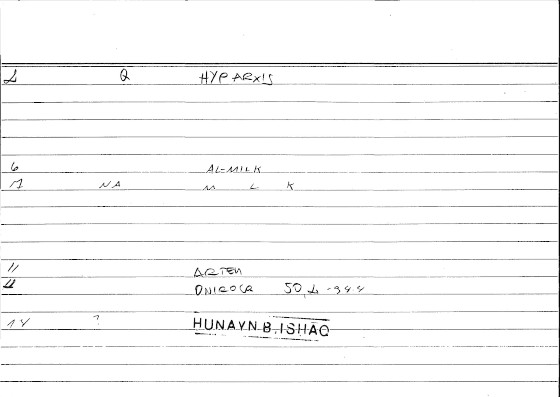 Q HYPARXIS
6 AL-MILK
7 NA M L K
11 ARTEM
ONIROCR 50,
14 ? HUNAYN B. ISHAQ